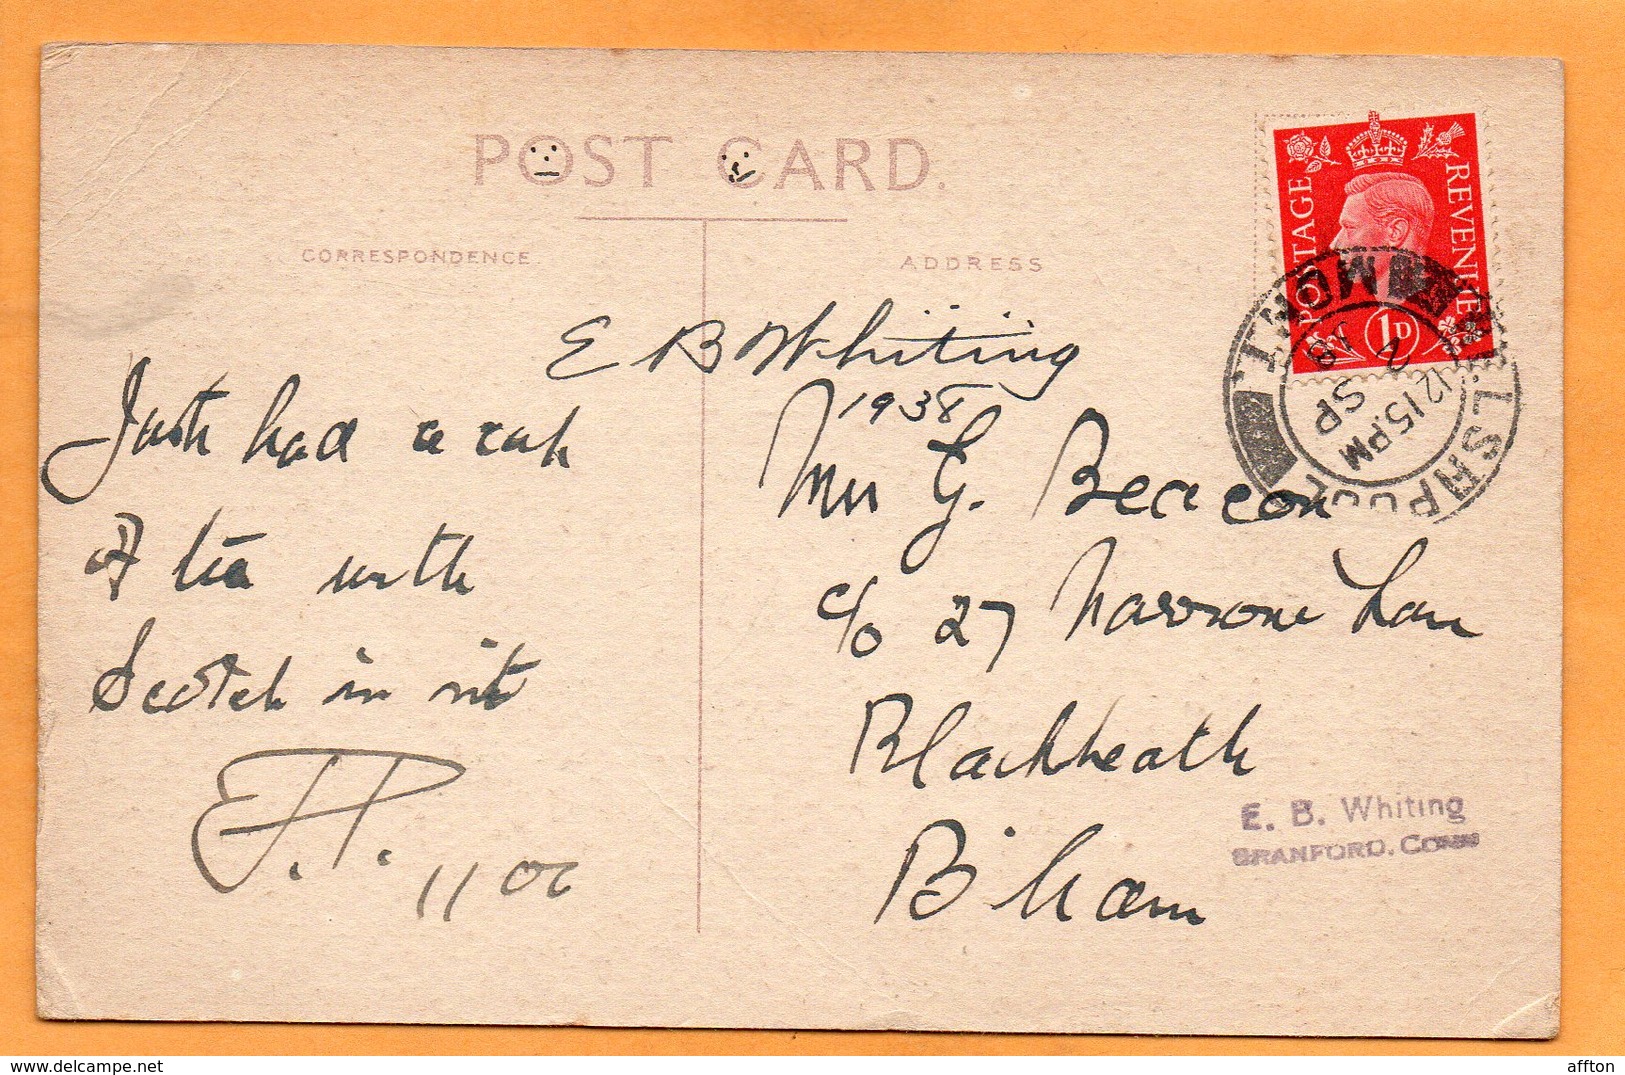 POST CARD.
CORRESPONDENCE.
ADDRESS
POSTAGE
REVENUE
1D
12 15 PM
2 SP
38
E B Whiting
1938
Just had a cup
of tea with
Scotch in it
11 oc
Mrs G. Beacon
c/o 27 Narrow Lane
Blackheath
B'ham
E. B. Whiting
BRANFORD, CONN
affton